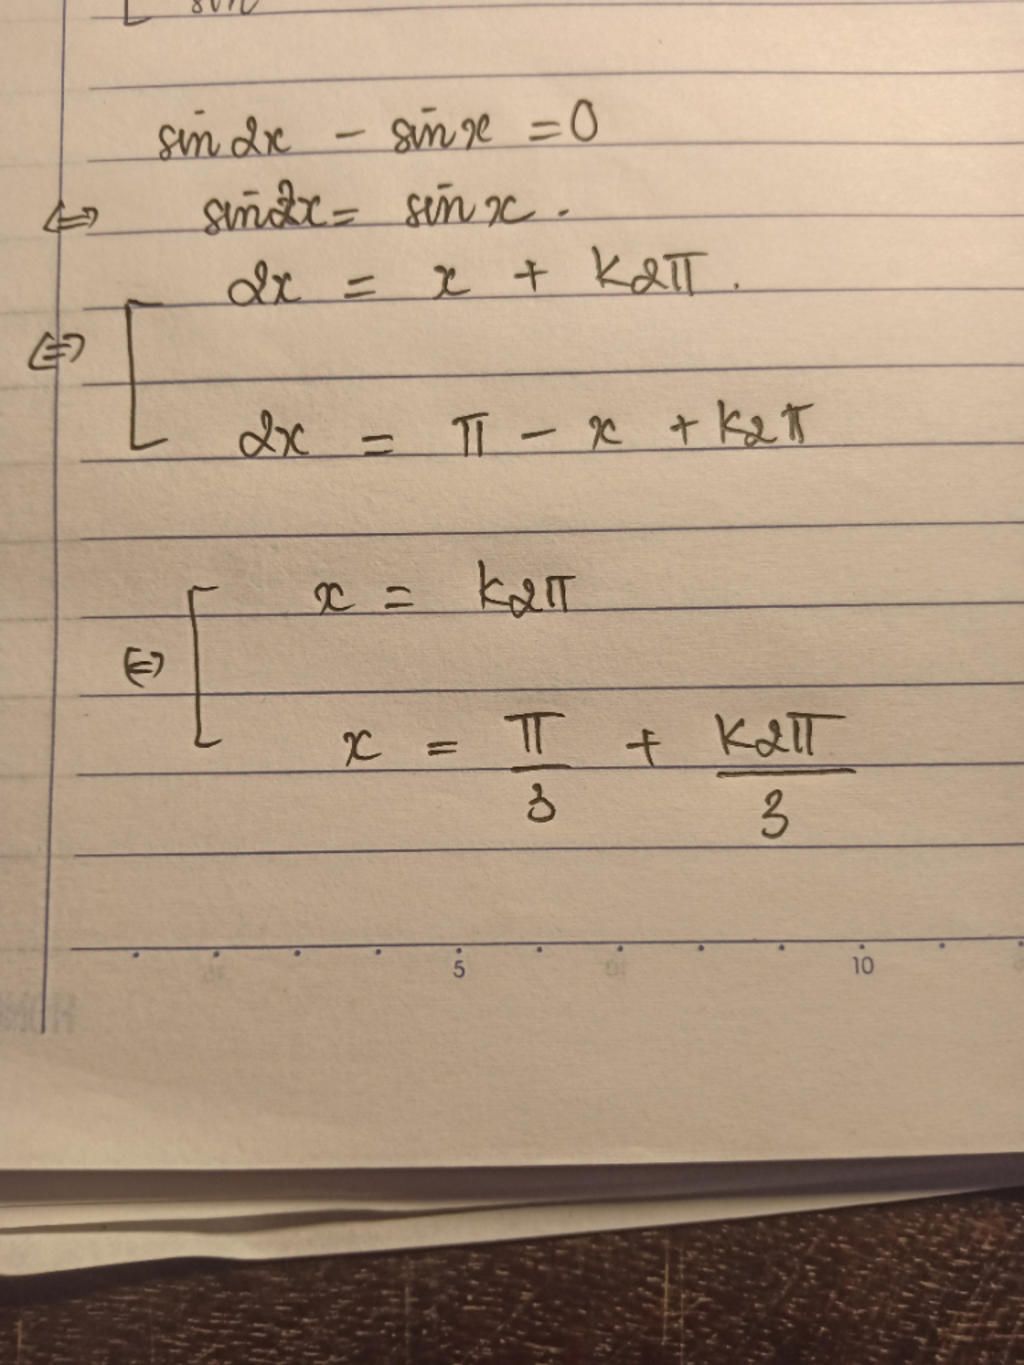 sin
sin 2x - sin x = 0
⇔ sin 2x = sin x.
⇔ [ 2x = x + k2π.
2x = π - x + k2π
⇔ [ x = k2π
x = π/3 + k2π/3
5 10